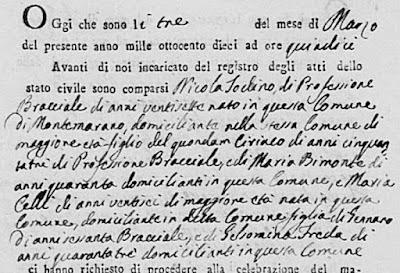 Oggi che sono li tre del mese di Marzo
del presente anno mille ottocento dieci ad ore quindici
Avanti di noi incaricato del registro degli atti dello
stato civile sono comparsi Nicola Sodino, di Professione
Bracciale di anni ventisette nato in questa Comune
di Montemarano, domiciliante nella stessa Comune di
maggione età figlio del quondam Ciriaco di anni cinquan
tatré di Professione Bracciale, e di Maria Bimonte di
anni quaranta domicilianti in questa Comune, e Maria
Celli di anni ventisei di maggione età nata in questa
Comune, domiciliante in detta Comune figlia di Gennaro
di anni sessanta Bracciale, e di Gelsomina Freda di
anni quarantatrè domicilianti in questa Comune
ci hanno richiesto di procedere alla celebrazione del ma-